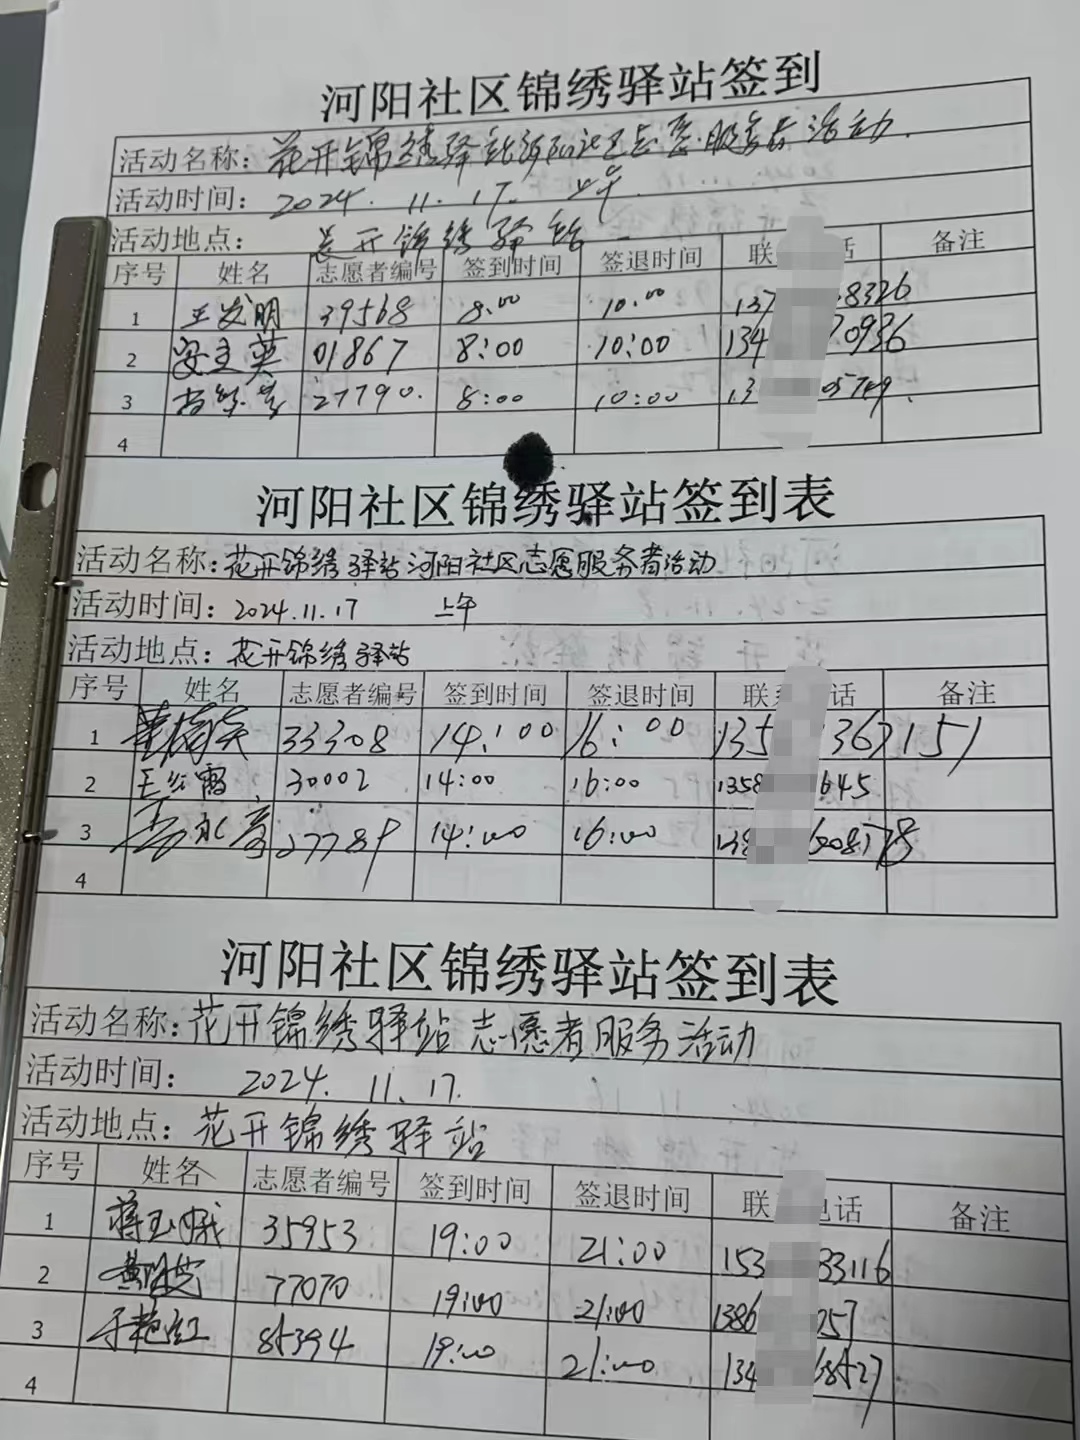 河阳社区锦绣驿站签到
活动名称：花开锦绣驿站河阳社区志愿服务者活动.
活动时间： 2024. 11. 17. 上午
活动地点： 花开锦绣驿站
序号 姓名 志愿者编号 签到时间 签退时间 联 话 备注
1 王发明 39568 8:00 10:00 137 8326
2 安主英 01867 8:00 10:00 134 0936
3 27790. 8:00 10:00 13 05749.
4
河阳社区锦绣驿站签到表
活动名称：花开锦绣驿站河阳社区志愿服务者活动
活动时间：2024.11.17 上午
活动地点：花开锦绣驿站
序号 姓名 志愿者编号 签到时间 签退时间 联系 话 备注
1 33308 14:00 16:00 135 367151
2 30002 14:00 16:00 1358 645
3 27789 14:00 16:00 138 608578
4
河阳社区锦绣驿站签到表
活动名称：花开锦绣驿站志愿者服务活动
活动时间： 2024. 11. 17.
活动地点：花开锦绣驿站
序号 姓名 志愿者编号 签到时间 签退时间 联 电话 备注
1 蒋玉娥 35953 19:00 21:00 153 33116
2 77070 19:00 21:00 1386 257
3 于艳红 85394 19:00 21:00 134 68527
4